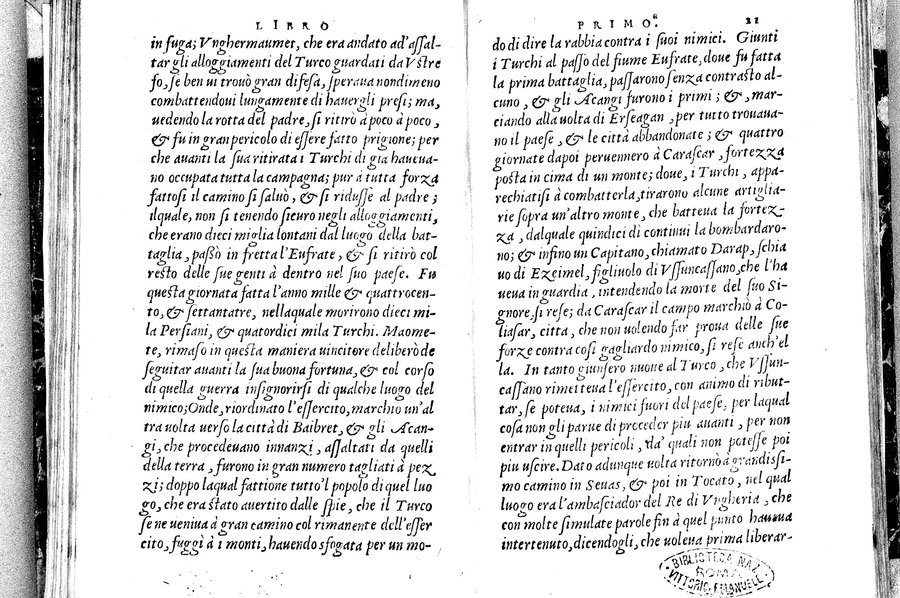 LIBRO
in fuga; Vnghermaumet, che era andato ad'assal-
tar gli alloggiamenti del Turco guardati da Vstre
fo, se ben ui trouò gran difesa, speraua nondimeno
combattendoui lungamente di hauergli presi; ma,
uedendo la rotta del padre, si ritirò à poco à poco,
& fu in gran pericolo di essere fatto prigione; per
che auanti la sua ritirata i Turchi di gia haueua-
no occupata tutta la campagna; pur à tutta forza
fattosi il camino si saluò, & si ridusse al padre;
ilquale, non si tenendo sicuro negli alloggiamenti,
che erano dieci miglia lontani dal luogo della bat-
taglia, passò in fretta l'Eufrate, & si ritirò col
resto delle sue genti à dentro nel suo paese. Fu
questa giornata fatta l'anno mille & quattrocen-
to, & settantatre, nellaquale morirono dieci mi-
la Persiani, & quatordici mila Turchi. Maome-
te, rimaso in questa maniera uincitore deliberò de
seguitar auanti la sua buona fortuna, & col corso
di quella guerra insignorirsi di qualche luogo del
nimico; Onde, riordinato l'essercito, marchio un'al
tra uolta uerso la città di Baibret, & gli Acan-
gi, che procedeuano innanzi, assaltati da quelli
della terra, furono in gran numero tagliati à pez
zi; doppo laqual fattione tutto'l popolo di quel luo
go, che era stato auertito dalle spie, che il Turco
se ne ueniua à gran camino col rimanente dell'esser
cito, fuggì à i monti, hauendo sfogata per un mo-
PRIMO. 21
do di dire la rabbia contra i suoi nimici. Giunti
i Turchi al passo del fiume Eufrate, doue fu fatta
la prima battaglia, passarono senza contrasto al-
cuno, & gli Acangi furono i primi; &, mar-
ciando alla uolta di Erseagan, per tutto trouaua-
no il paese, & le città abbandonate; & quattro
giornate dapoi peruennero à Carascar, fortezza
posta in cima di un monte; doue, i Turchi, appa-
rechiatisi à combatterla, tirarono alcune artiglia-
rie sopra un'altro monte, che batteua la fortez-
za, dalquale quindici dì continui la bombardaro-
no; & infino un Capitano, chiamato Darap, schia
uo di Ezeimel, figliuolo di Vssuncassano, che l'ha
ueua in guardia, intendendo la morte del suo Si-
gnore, si rese; da Carascar il campo marchiò à Co-
liasar, citta, che non uolendo far proua delle sue
forze contra così gagliardo nimico, si rese anch'el
la. In tanto giunsero nuoue al Turco, che Vssun-
cassano rimetteua l'essercito, con animo di ribut-
tar, se poteua, i nimici fuori del paese, per laqual
cosa non gli parue di proceder piu auanti, per non
entrar in quelli pericoli, da' quali non potesse poi
piu uscire. Dato adunque uolta ritornò à grandissi-
mo camino in Seuas, & poi in Tocato, nel qual
luogo era l'ambasciador del Re di Vngheria, che
con molte simulate parole fin à quel punto haueua
intertenuto, dicendogli, che uoleua prima liberar-
BIBLIOTECA NAZ.
ROMA
VITTORIO EMANUELE